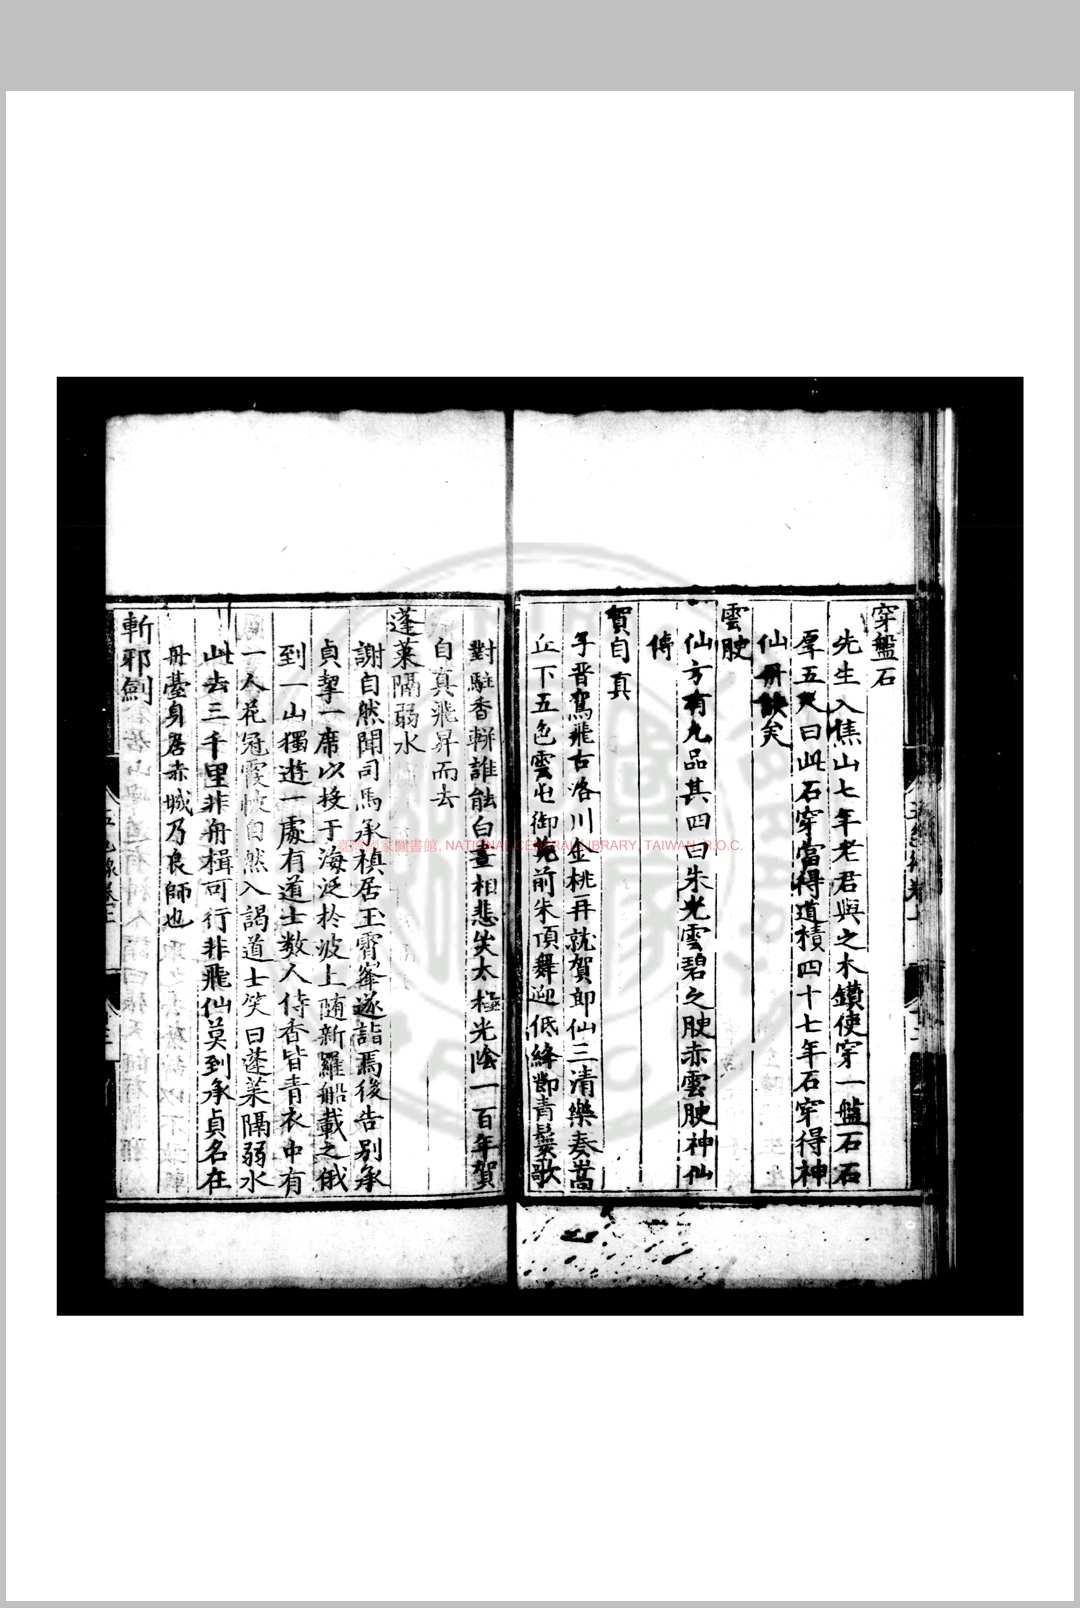 穿盤石
先生入焦山七年老君與之木鑽使穿一盤石石
厚五尺曰此石穿當得道積四十七年石穿得神
仙丹訣矣
雲腴
仙方有九品其四曰朱光雲碧之腴赤雲腴神仙
傳
賀自真
子晉駕飛古洛川金桃再就賀郎仙三清樂奏嵩
丘下五色雲屯御苑前朱頂舞迎低絳節青鬟歌
對駐香軿誰能白晝相悲失太極光陰一百年賀
自真飛昇而去
蓬萊隔弱水
謝自然聞司馬承禎居玉霄峯遂詣焉後告別承
貞挈一席以投于海泛於波上随新羅船載之俄
到一山獨遊一處有道士数人侍香皆青衣中有
一人花冠霞帔自然入謁道士笑曰蓬萊隔弱水
此去三千里非舟楫可行非飛仙莫到承貞名在
丹臺身居赤城乃良師也
斬邪劍
臺灣國家圖書館, NATIONAL CENTRAL LIBRARY, TAIWAN, R.O.C.